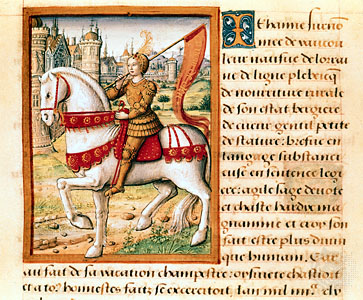 Jehanne surnom
mee de vaucou
leur natifue de lorai
ne de ligne plebeicq
de nourriture rurale
de son estat bergere
de cueur gentil petite
de stature: brefue en
langage substanci
eusē en sentence lege
re: agile sage deuote
et chaste hardie ma
gnanime et croy son
fait estre plus diuin
que humain. Car
au fait de sa vacation champestre: oysiuete chastioit
et a tor honnestes faitz se excercitoit. Lan mil iiiic. clv